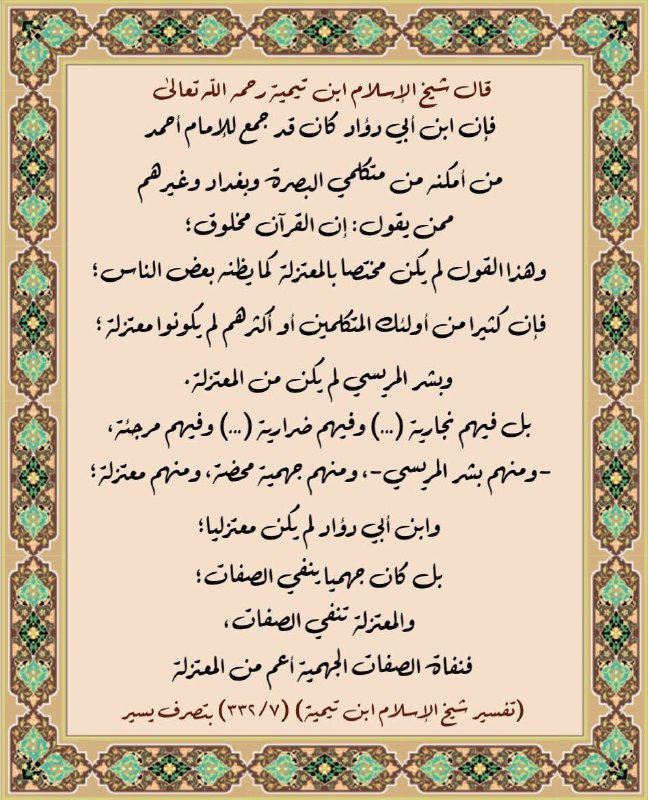 قال شيخ الإسلام ابن تيمية رحمه الله تعالى
فإن ابن أبي دؤاد كان قد جمع للإمام أحمد
من أمكنه من متكلمي البصرة وبغداد وغيرهم
ممن يقول: إن القرآن مخلوق؛
وهذا القول لم يكن مختصا بالمعتزلة كما يظنه بعض الناس؛
فإن كثيرا من أولئك المتكلمين أو أكثرهم لم يكونوا معتزلة؛
وبشر المريسي لم يكن من المعتزلة.
بل فيهم نجارية (...) وفيهم ضرارية (...) وفيهم مرجئة،
-ومنهم بشر المريسي-، ومنهم جهمية محضة، ومنهم معتزلة؛
وابن أبي دؤاد لم يكن معتزليا؛
بل كان جهميا ينفي الصفات؛
والمعتزلة تنفي الصفات،
فنفاة الصفات الجهمية أعم من المعتزلة
(تفسير شيخ الإسلام ابن تيمية) (٣٣٢/٧) بتصرف يسير